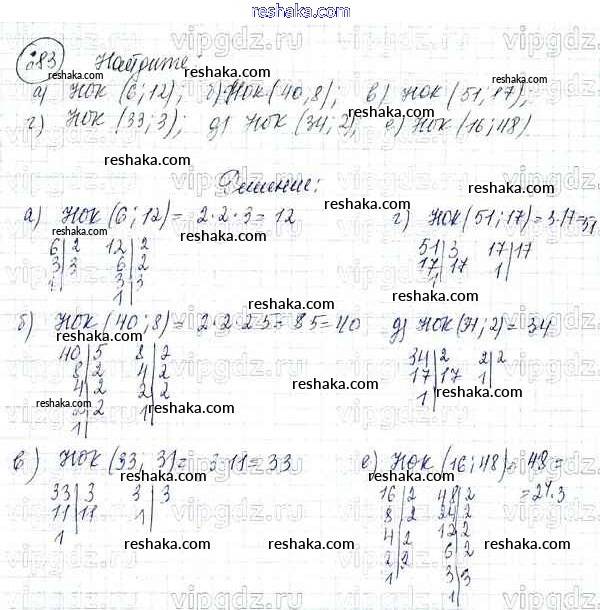 reshaka.com
683 Найдите:
а) НОК (6; 12); б) НОК (40, 8); в) НОК (51, 17);
г) НОК (33; 3); д) НОК (34; 2); е) НОК (16; 48)
Решение:
а) НОК (6; 12) = 2·2·3 = 12
6 | 2 12 | 2
3 | 3 6 | 2
1 3 | 3
1
г) НОК (51; 17) = 3·17 = 51
51 | 3 17 | 17
17 | 17 1
1
б) НОК (40; 8) = 2·2·2·5 = 8·5 = 40
40 | 5 8 | 2
8 | 2 4 | 2
4 | 2 2 | 2
2 | 2 1
1
д) НОК (34; 2) = 34
34 | 2 2 | 2
17 | 17 1
1
в) НОК (33; 3) = 3·11 = 33
33 | 3 3 | 3
11 | 11 1
1
е) НОК (16; 48) = 48 =
= 2⁴·3
16 | 2 48 | 2
8 | 2 24 | 2
4 | 2 12 | 2
2 | 2 6 | 2
1 3 | 3
1
reshaka.com
vipgdz.ru